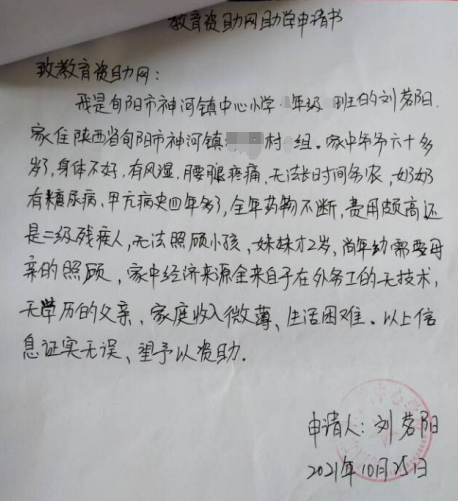 教育资助网助学申请书
致教育资助网：
我是旬阳市神河镇中心小学 年级 班的刘茗阳.
家住陕西省旬阳市神河镇 村 组。家中爷爷六十多
岁了,身体不好,有风湿,腰腿疼痛,无法长时间务农,奶奶
有糖尿病,甲亢病史四年多了,全年药物不断,费用颇高还
是二级残疾人,无法照顾小孩,妹妹才2岁,尚年幼需要母
亲的照顾,家中经济来源全来自于在外务工的无技术,
无学历的父亲、家庭收入微薄、生活困难。以上信
息证实无误、望予以资助.
申请人:刘茗阳
2021年10月25日